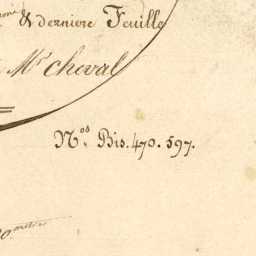 & derniere Feuille
Mr. cheval
Nos. Bis. 470. 597.